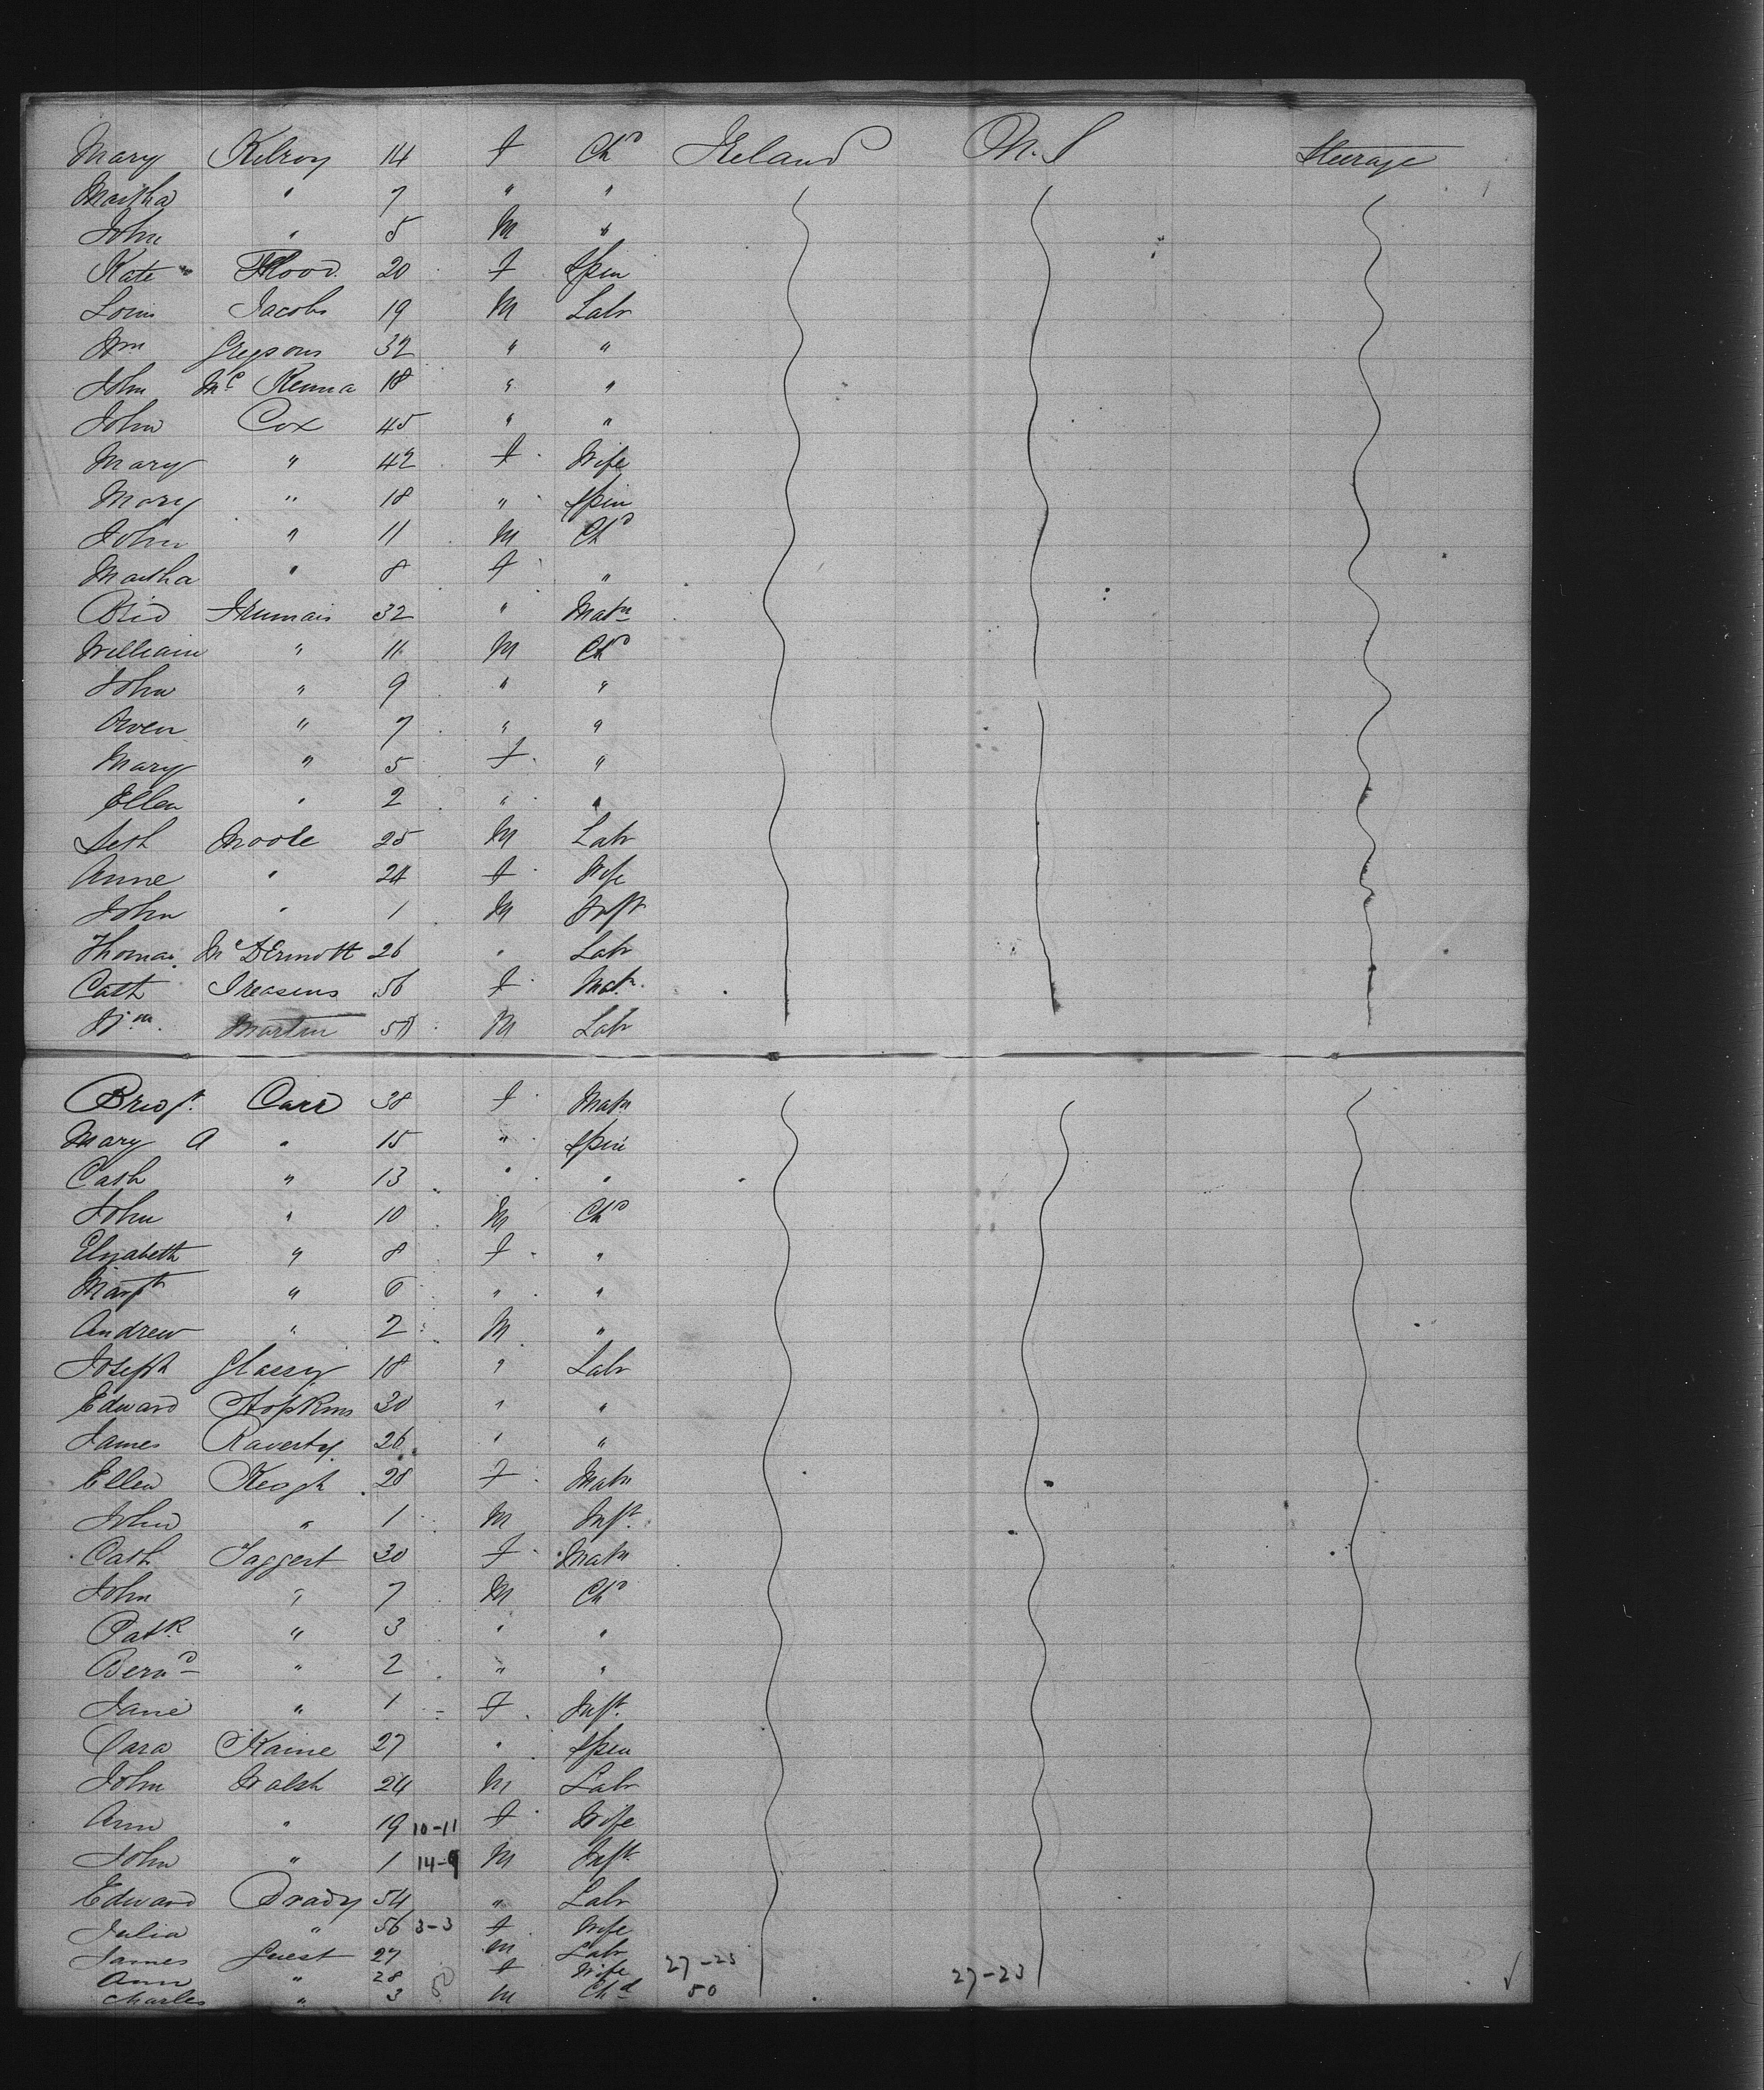 Mary Kilroy 14 f Chd Ireland U.S Steerage
Martha " 7 " "
John " 5 M "
Kate Flood 20 f Spin
Louis Jacobs 19 M Labr
Wm Gregsons 32 " "
John Mc Kenna 18 " "
John Cox 45 " "
Mary " 42 f Wife
Mary " 18 " Spin
John " 11 M Chd
Martha " 8 f "
Brid 32 " Matn
William " 11 M Chd
John " 9 " "
Owen " 7 " "
Mary " 5 f "
Ellen " 2 " "
Seth Moore 25 M Labr
Anne " 24 f Wife
John " 1 M Inft
Thomas McDermott 26 " Labr
Cath 56 f Matn
Wm Martin 50 M Labr
Bridgt Carr 38 f Matn
Mary A " 15 " Spin
Cath " 13 " "
John " 10 M Chd
Elizabeth " 8 f "
Margt " 6 " "
Andrew " 2 M "
Joseph Glassy 18 " Labr
Edward Hopkins 30 " "
James Raverty 26 " "
Ellen Keogh 28 f Matn
John " 1 M Inft
Cath Taggert 30 f Matn
John " 7 M Chd
Patk " 3 " "
Bernd " 2 " "
Jane " 1 F Inft
Cara Kaine 27 " Spin
John Walsh 24 M Labr
Ann " 19 10-11 f Wife
John " 1 14-9 M Inft
Edward Brady 54 " Labr
Julia " 56 3-3 f Wife
James Guest 27 M Labr 27-23
Ann " 28 f Wife 27-23
Charles " 3 50 M Chd 50